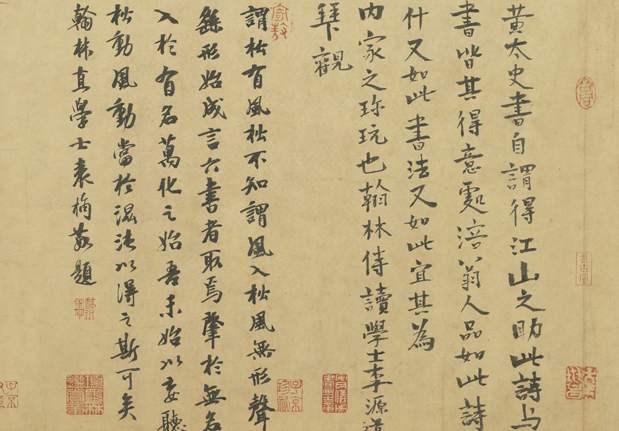 黃太史書自謂得江山之助此詩与
書皆其得意處涪翁人品如此詩
什又如此書法又如此宜其為
內家之珎玩也翰林侍讀學士李源道
拜觀
謂松有風松不知謂風入松風無形聲
繇形始成言六書者取焉肇於無名
入於有名萬化之始吾未始以妄聽
松動風動當於混沌以得之斯可矣
翰林直學士袁桷敬題